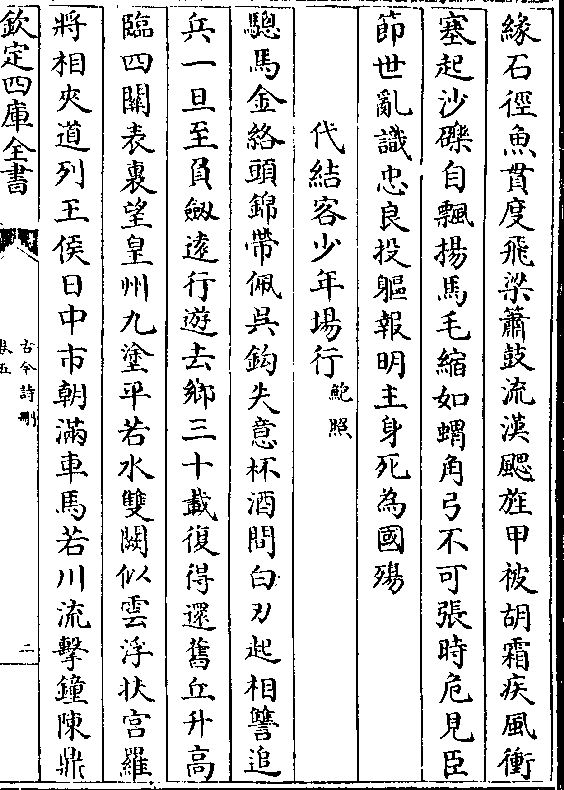 緣石徑魚貫度飛梁簫鼓流漢颸旌甲被胡霜疾風衝
塞起沙礫自飄揚馬毛縮如蝟角弓不可張時危見臣
節世亂識忠良投軀報明主身死為國殤
代結客少年場行鮑照
驄馬金絡頭錦帶佩吳鈎失意杯酒間白刃起相讐追
兵一旦至負劔逺行遊去鄉三十載復得還舊丘升高
臨四關表裏望皇州九塗平若水雙闕似雲浮扶宫羅
將相夾道列王侯日中市朝滿車馬若川流擊鐘陳鼎
欽定四庫全書
古今詩刪
卷五
二